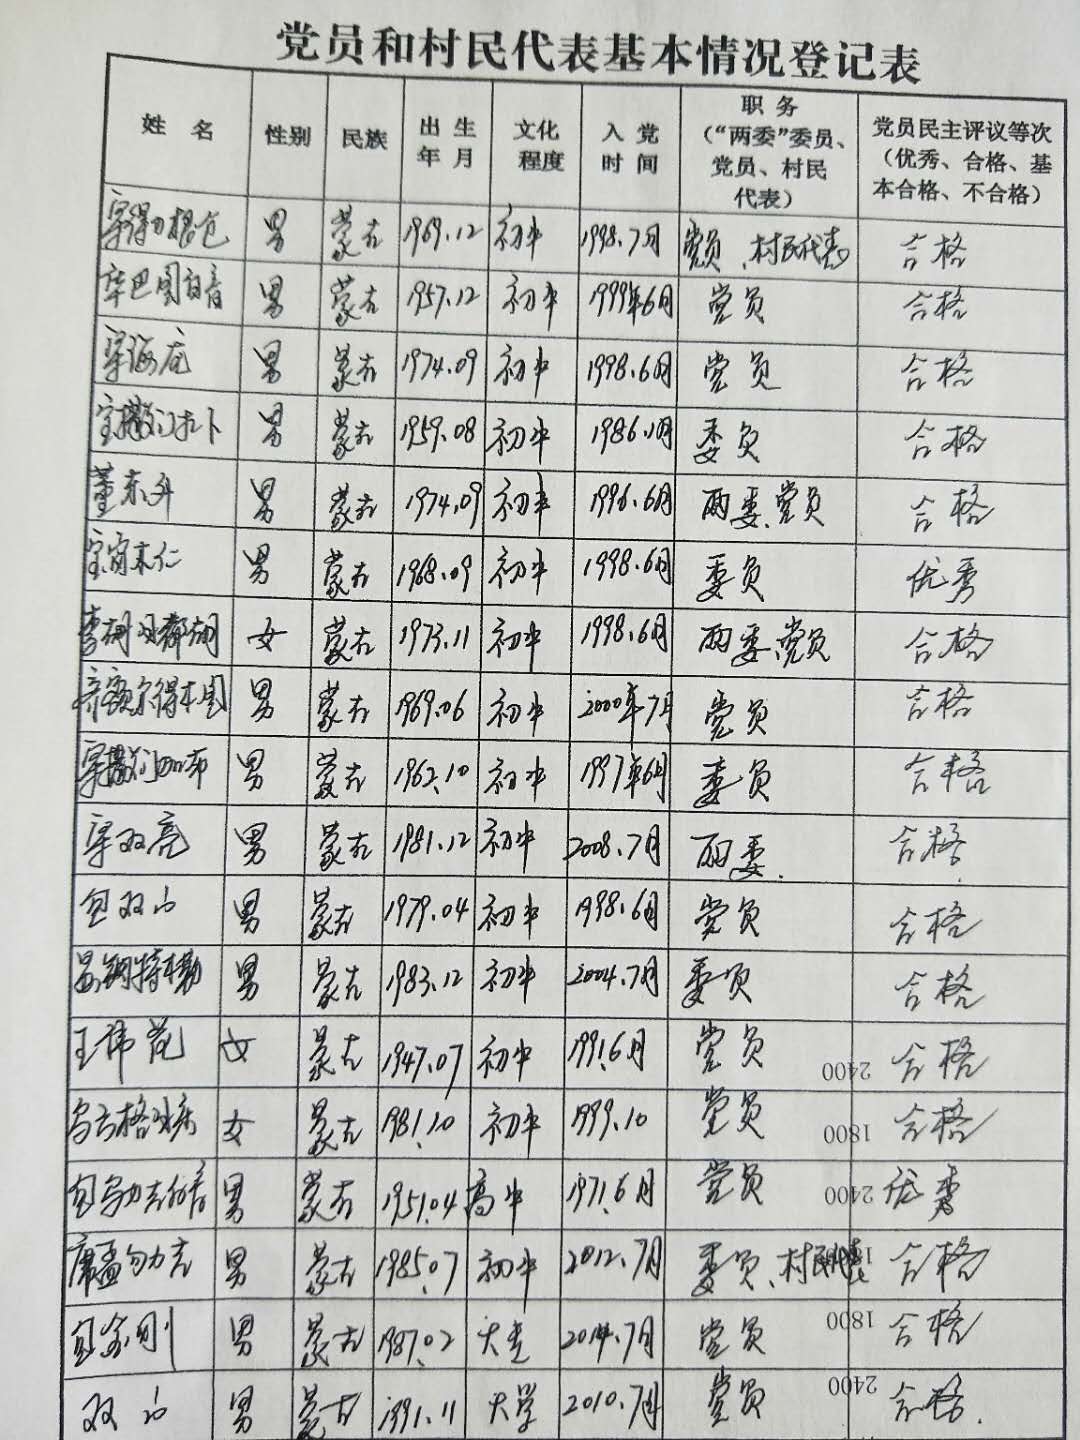 党员和村民代表基本情况登记表
姓 名 性别 民族 出生年月 文化程度 入党时间 职务（“两委”委员、党员、村民代表） 党员民主评议等次（优秀、合格、基本合格、不合格）
男 蒙古 1969.12 初中 1998.7月 党员、村民代表 合格
男 蒙古 1957.12 初中 1999年6月 党员 合格
男 蒙古 1974.09 初中 1998.6月 党员 合格
男 蒙古 1959.08 初中 委员 合格
董东升 男 蒙古 1974.09 初中 1996.6月 两委、党员 合格
男 蒙古 1968.09 初中 1998.6月 委员 优秀
女 蒙古 1973.11 初中 1998.6月 两委、党员 合格
男 蒙古 1969.06 初中 2000年7月 党员 合格
男 蒙古 1962.10 初中 1997年6月 委员 合格
双亮 男 蒙古 1981.12 初中 2008.7月 两委 合格
包双山 男 蒙古 1979.04 初中 1998.6月 党员 合格
男 蒙古 1983.12 初中 2004.7月 委员 合格
女 蒙古 1947.07 初中 1991.6月 党员 2400 合格
女 蒙古 1981.10 初中 1999.10 党员 1800 合格
男 蒙古 1951.04 高中 1971.6月 党员 2400 优秀
男 蒙古 1985.07 初中 2012.7月 委员、村民代表 合格
包金刚 男 蒙古 1987.02 大专 2014.7月 党员 1800 合格
双山 男 蒙古 1991.11 大学 2010.7月 党员 2400 合格